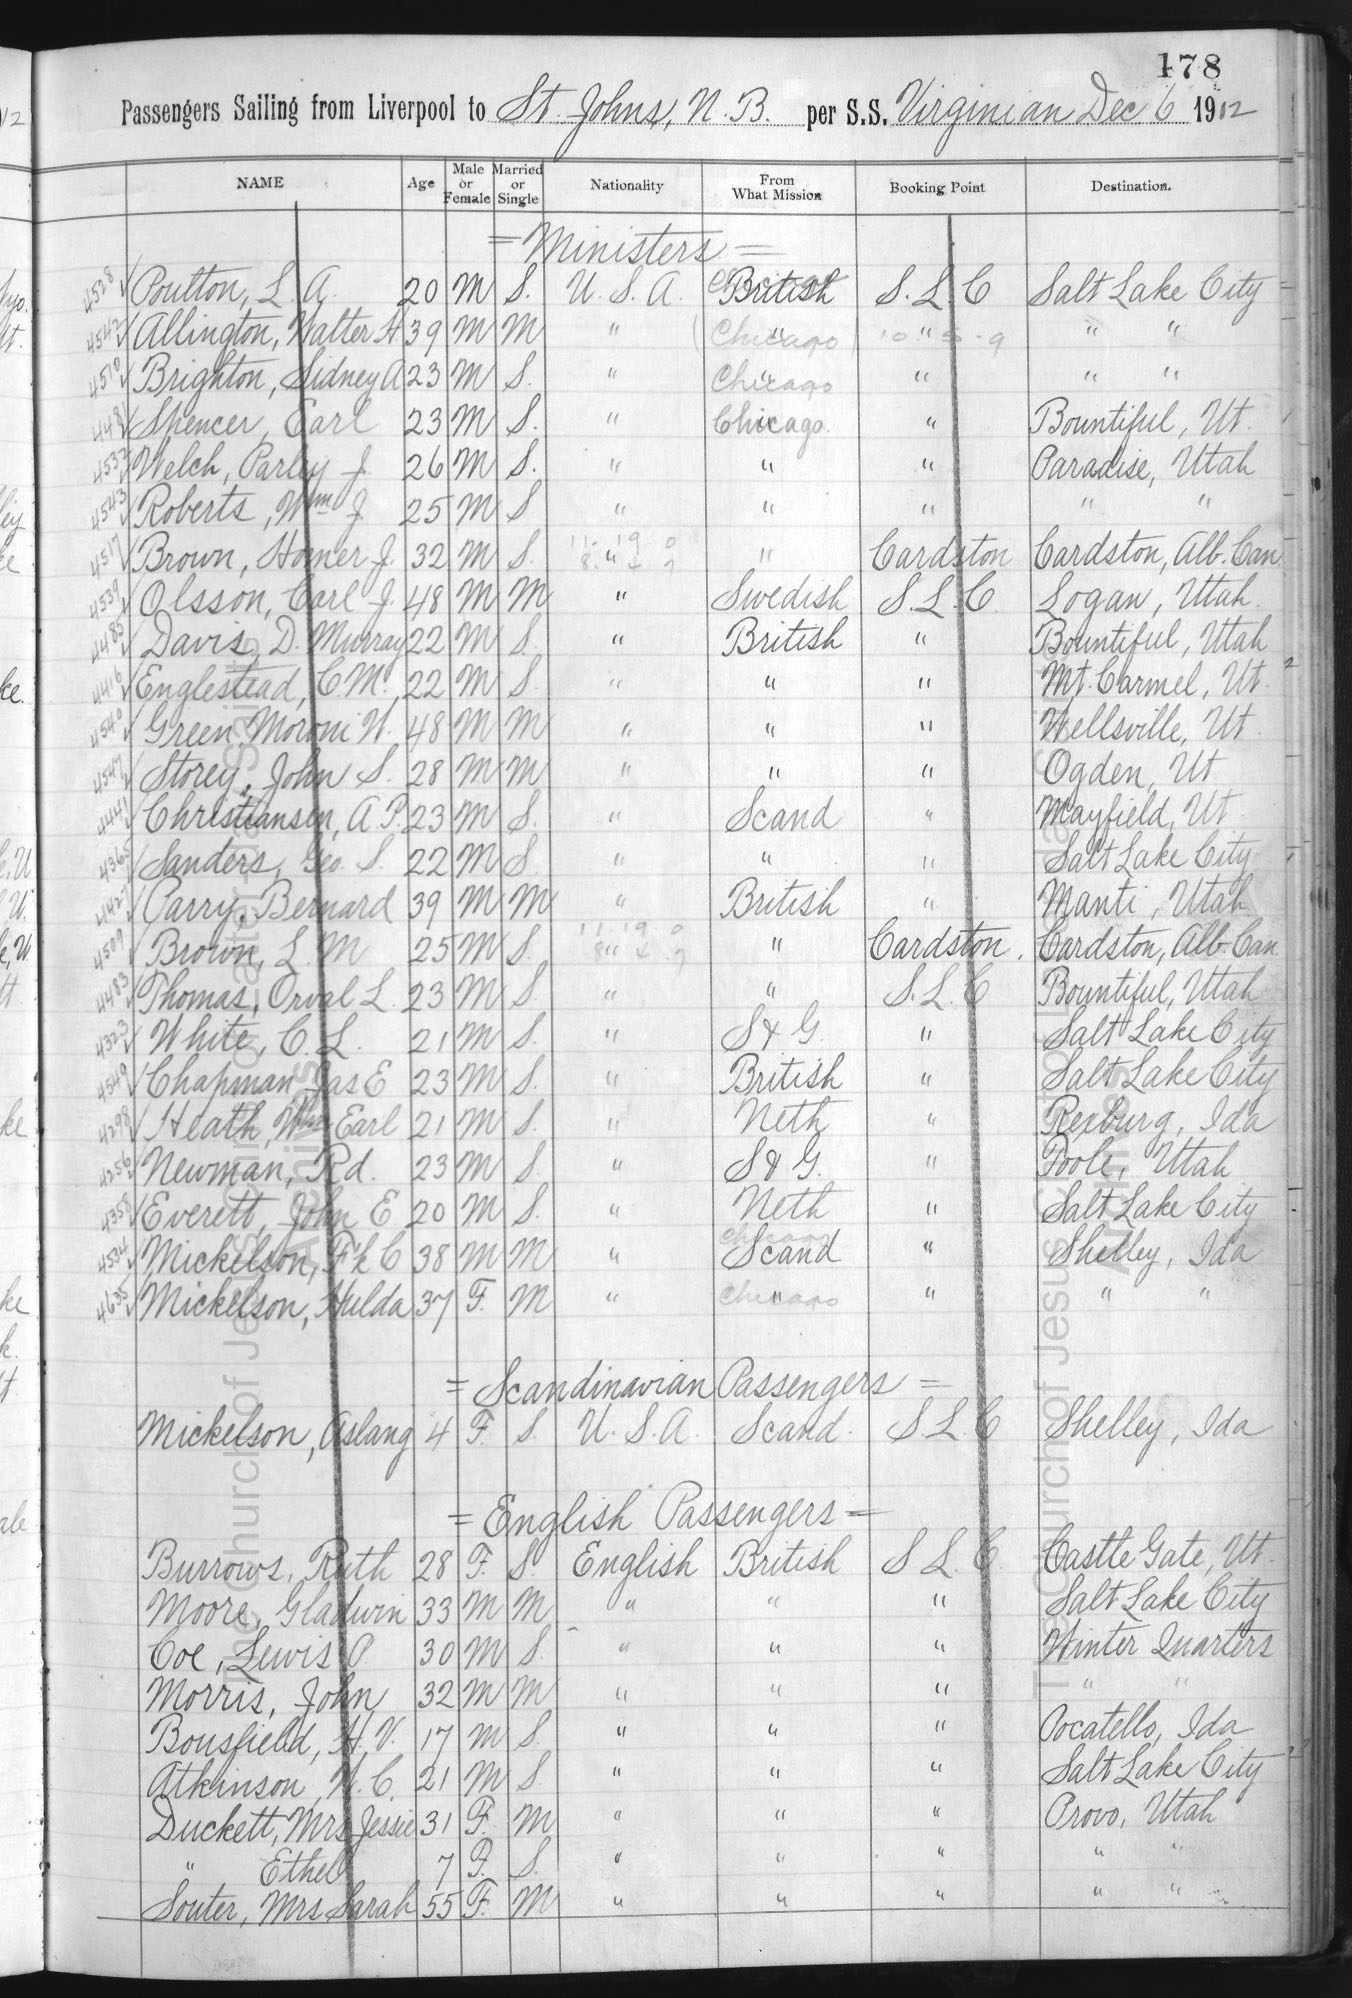 178
Passengers Sailing from Liverpool to St. Johns, N.B. per S.S. Virginian Dec 6 1912
NAME Age Male or Female Married or Single Nationality From What Mission Booking Point Destination.
= Ministers =
4528 Poulton, L. A. 20 M S. U. S. A. British S. L. C Salt Lake City
4542 Allington, Walter H 39 M M " Chicago " " "
4510 Brighton, Sidney A 23 M S. " Chicago " " "
4481 Spencer, Earl 23 M S. " Chicago " Bountiful, Ut.
4532 Welch, Parley J. 26 M S. " " " Paradise, Utah
4543 Roberts, Wm J 25 M S " " " " "
4517 Brown, Homer J. 32 M S. 11. 19. 0 " " Cardston Cardston, Alb. Can
4539 Olsson, Carl J. 48 M M " Swedish S. L. C. Logan, Utah.
4485 Davis, D. Murray 22 M S. " British " Bountiful, Utah
4416 Englestead, C. M. 22 M S. " " " Mt. Carmel, Ut.
4540 Green Moroni W. 48 M M " " " Wellsville, Ut.
4547 Storey, John S. 28 M M " " " Ogden, Ut
4441 Christiansen, A. P. 23 M S. " Scand " Mayfield, Ut.
4365 Sanders, Geo. S. 22 M S. " " " Salt Lake City
4427 Parry, Bernard 39 M M " British " Manti, Utah
4509 Brown, L. M 25 M S. 11. 19. 0 " " Cardston. Cardston, Alb. Can
4483 Thomas, Orval L. 23 M S. " " S. L. C Bountiful, Utah
4323 White, C. L. 21 M S. " S & G. " Salt Lake City
4549 Chapman Jas E 23 M S. " British " Salt Lake City
4298 Heath, Wm Earl 21 M S. " Neth " Rexburg, Ida
4256 Newman, Rd. 23 M S. " S & G. " Poole, Utah
4358 Everett, John E 20 M S. " Neth " Salt Lake City
4534 Mickelson, Fk C 38 M M " Chicago Scand " Shelley, Ida
4635 Mickelson, Hulda 37 F. M " Chicago " " "
= Scandinavian Passengers =
Mickelson, Aslang 4 F. S. U. S. A. Scand. S. L. C Shelley, Ida
= English Passengers =
Burrows, Ruth 28 F. S. English British S L. C. Castle Gate, Ut.
Moore, Gladwin 33 M M " " " Salt Lake City
Coe, Lewis P 30 M S. " " " Winter Quarters
Morris, John 32 M M " " " " "
Bousfield, H. V. 17 M S. " " " Pocatello, Ida
Atkinson, W. C. 21 M S. " " " Salt Lake City
Duckett, Mrs Jessie 31 F. M " " " Provo, Utah
" Ethel 7 F. S. " " " " "
Souter, Mrs Sarah 55 F. M " " " " "